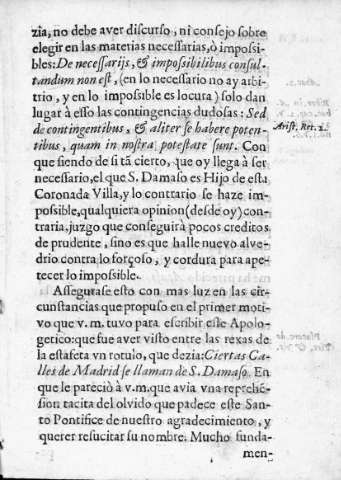 zia, no debe aver discurso, ni consejo sobre
elegir en las materias necessarias, ò impossi-
bles: De necessarijs, & impossibilibus consul-
tandum non est, (en lo necessario no ay arbi-
trio, y en lo impossible es locura) solo dan
lugar à esso las contingencias dudosas: Sed
de contingentibus, & aliter se habere poten-
tibus, quam in nostra potestate sunt. Con
que siendo de si tã cierto, que oy llega à ser
necessario, el que S. Damaso es Hijo de esta
Coronada Villa, y lo contrario se haze im-
possible, qualquiera opinion (desde oy) con-
traria, juzgo que conseguirà pocos creditos
de prudente, sino es que halle nuevo alve-
drio contra lo forçoso, y cordura para ape-
tecer lo impossible.
Assegurase esto con mas luz en las cir-
cunstancias que propuso en el primer moti-
vo que v.m. tuvo para escribir este Apolo-
getico: que fue aver visto entre las rexas de
la estafeta vn rotulo, que dezia: Ciertas Ca-
lles de Madrid se llaman de S. Damaso. En
que le pareciò à v.m. que avia vna reprehẽ-
sion tacita del olvido que padece este San-
to Pontifice de nuestro agradecimiento, y
querer resucitar su nombre. Mucho funda-
men-
Arist. Ret. 1.